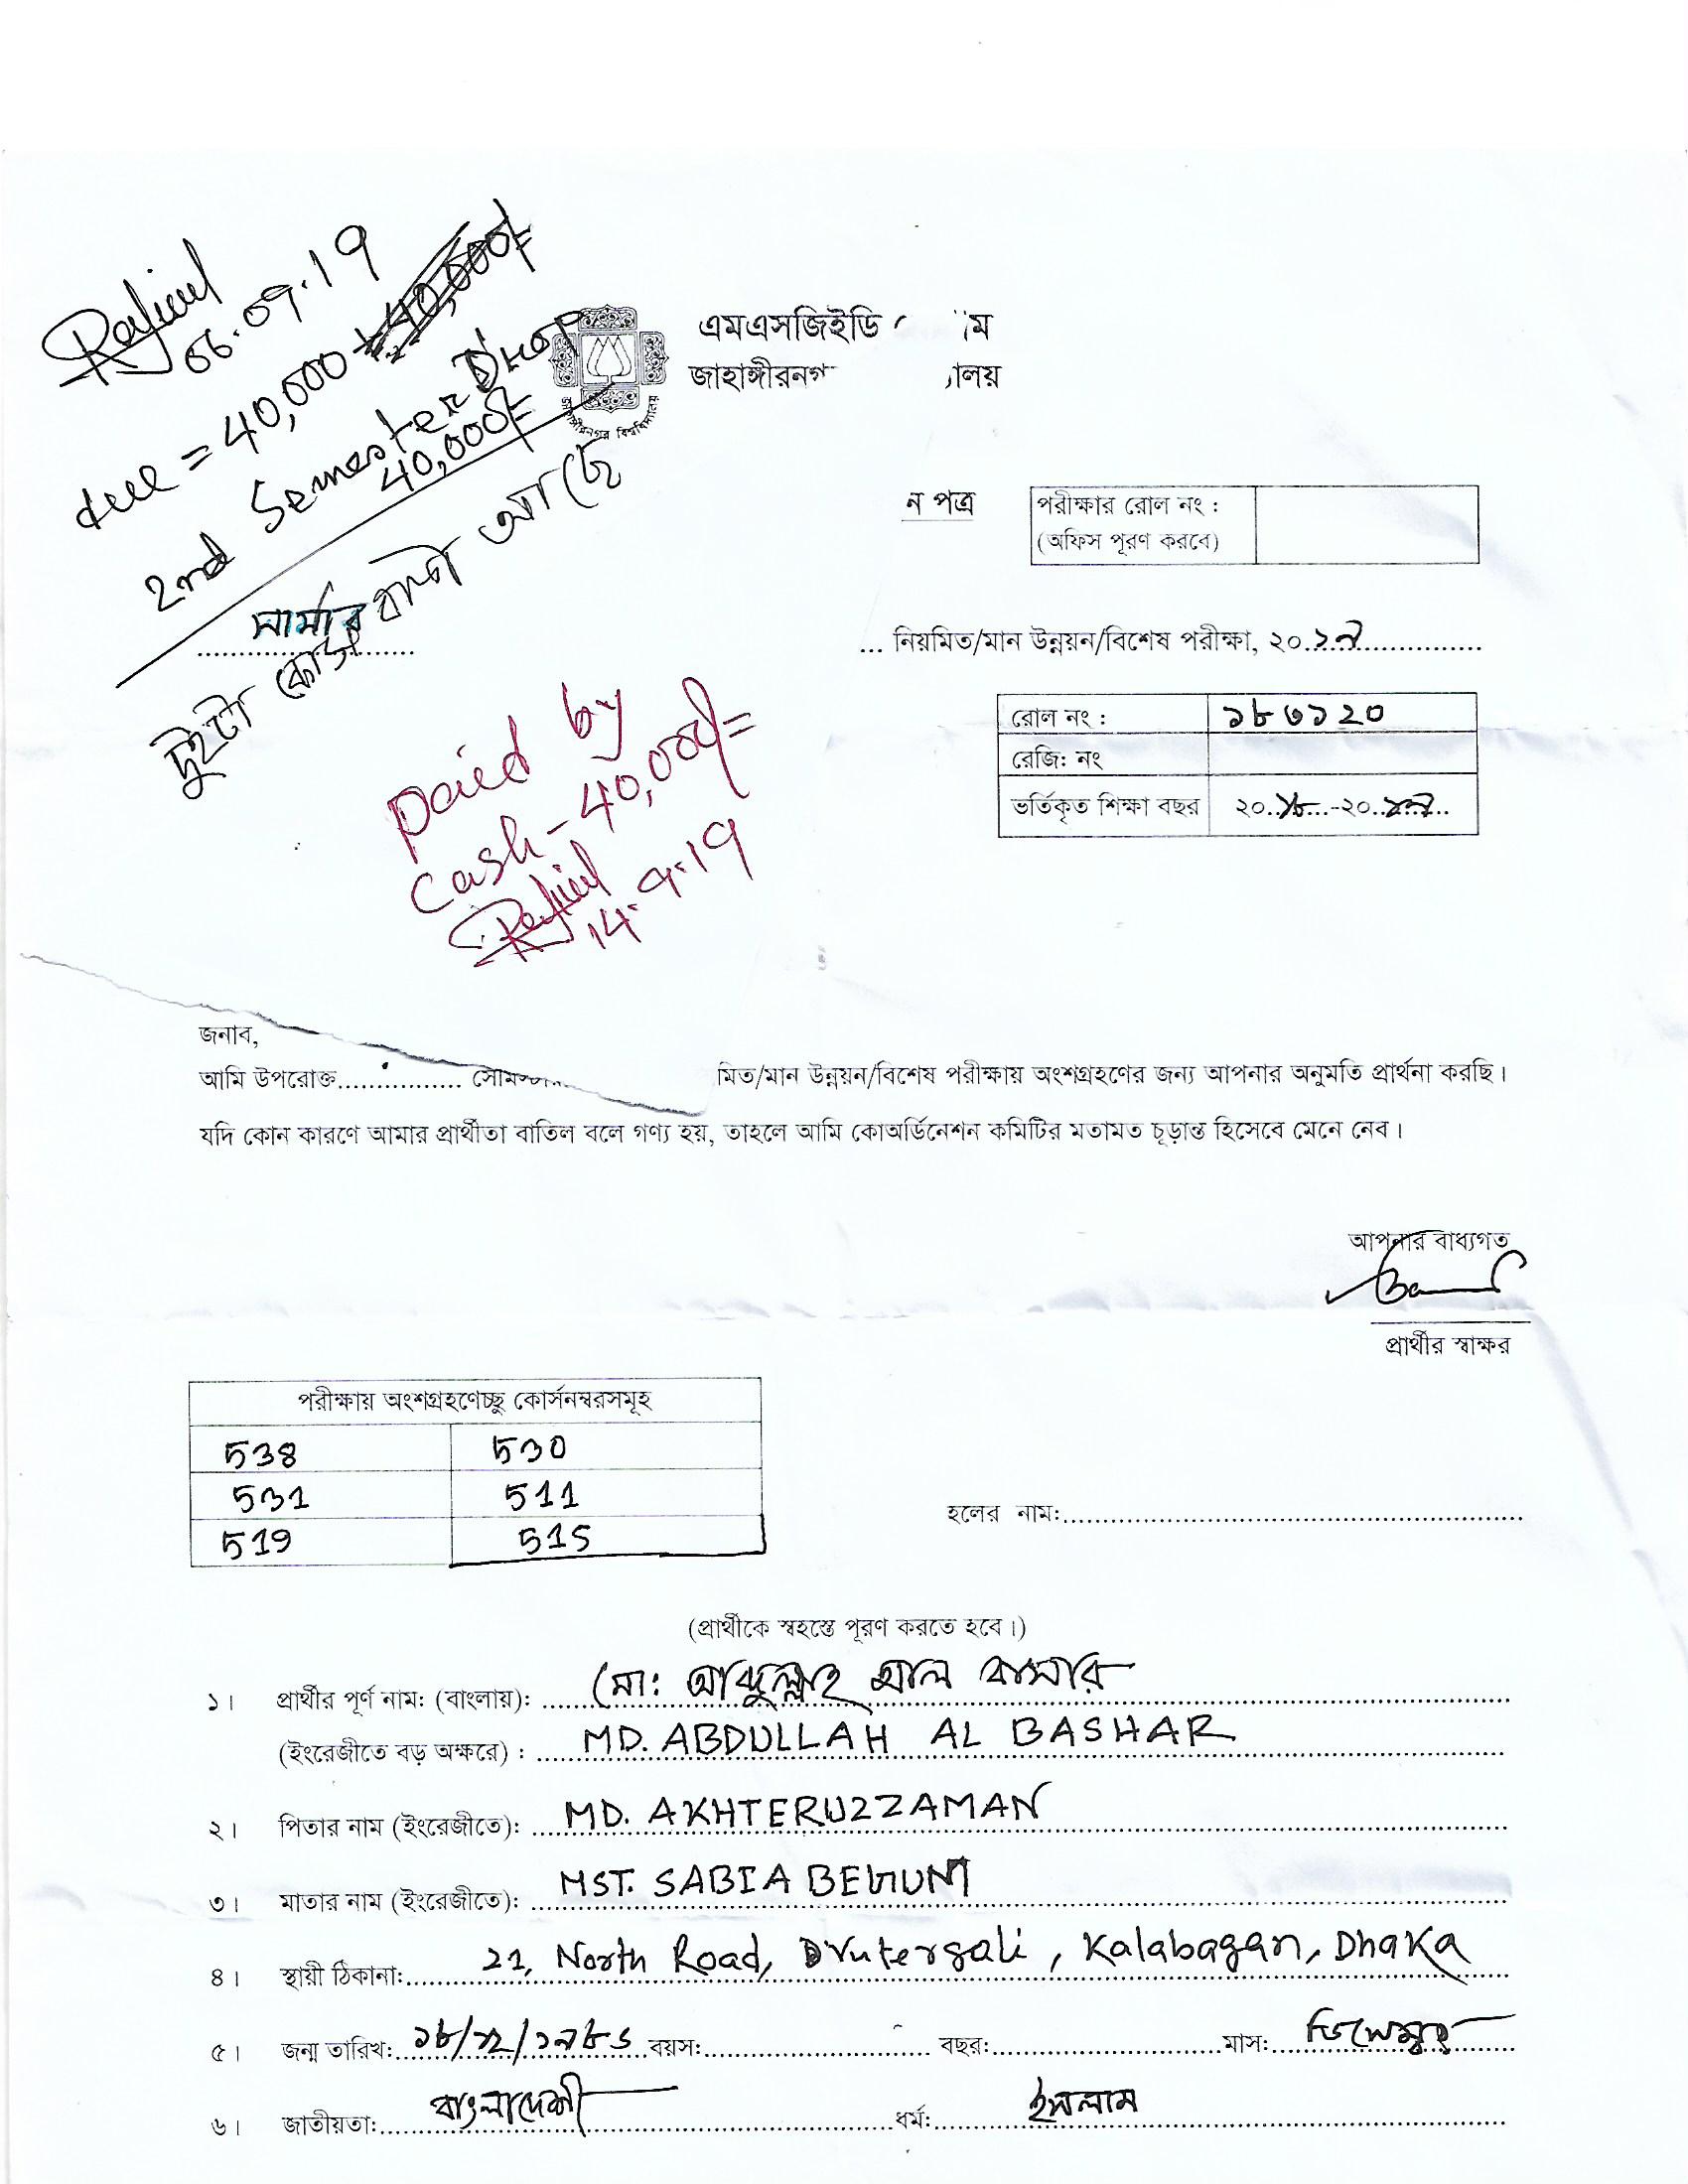 06.09.19
due = 40,000
2nd Semester Drop
40,000/=
সামার বাদ আছে
দুইটা কোর্স
paid by
cash - 40,000/=
14.9.19
জাহাঙ্গীরনগর বিশ্ববিদ্যালয়
এমএসজিইডি
জাহাঙ্গীরনগ
ন পত্র
পরীক্ষার রোল নং :
(অফিস পূরণ করবে)
... নিয়মিত/মান উন্নয়ন/বিশেষ পরীক্ষা, ২০১৯
রোল নং : ১৮৩১20
রেজি: নং
ভর্তিকৃত শিক্ষা বছর ২০১৮-২০১৯
জনাব,
আমি উপরোক্ত................ মিত/মান উন্নয়ন/বিশেষ পরীক্ষায় অংশগ্রহণের জন্য আপনার অনুমতি প্রার্থনা করছি।
যদি কোন কারণে আমার প্রার্থীতা বাতিল বলে গণ্য হয়, তাহলে আমি কোঅর্ডিনেশন কমিটির মতামত চূড়ান্ত হিসেবে মেনে নেব।
আপনার বাধ্যগত
প্রার্থীর স্বাক্ষর
পরীক্ষায় অংশগ্রহণেচ্ছু কোর্সনম্বরসমূহ
538 530
531 511
519 515
হলের নাম:
(প্রার্থীকে স্বহস্তে পূরণ করতে হবে।)
১। প্রার্থীর পূর্ণ নাম: (বাংলায়): মো: আব্দুল্লাহ আল বাসার
(ইংরেজীতে বড় অক্ষরে) : MD. ABDULLAH AL BASHAR
২। পিতার নাম (ইংরেজীতে): MD. AKHTERUZZAMAN
৩। মাতার নাম (ইংরেজীতে): MST. SABIA BEGUM
৪। স্থায়ী ঠিকানা: 21, North Road, Vutergali, Kalabagan, Dhaka
৫। জন্ম তারিখ: ১৮/১২/১৯৮৬ বয়স: বছর: মাস: ডিসেম্বর
৬। জাতীয়তা: বাংলাদেশী ধর্ম: ইসলাম